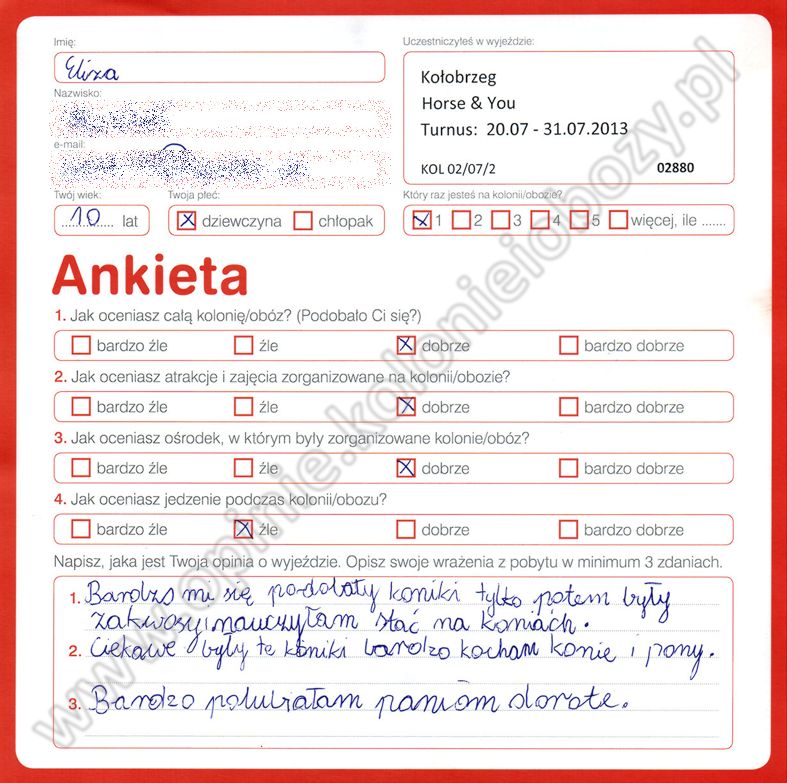 Imię:
Eliza
Nazwisko:
e-mail:
Twój wiek:
10 lat
Twoja płeć:
dziewczyna chłopak
Uczestniczyłeś w wyjeździe:
Kołobrzeg
Horse & You
Turnus: 20.07 - 31.07.2013
KOL 02/07/2 02880
Który raz jesteś na kolonii/obozie?
1 2 3 4 5 więcej, ile .......
Ankieta
1. Jak oceniasz całą kolonię/obóz? (Podobało Ci się?)
bardzo źle źle dobrze bardzo dobrze
2. Jak oceniasz atrakcje i zajęcia zorganizowane na kolonii/obozie?
bardzo źle źle dobrze bardzo dobrze
3. Jak oceniasz ośrodek, w którym były zorganizowane kolonie/obóz?
bardzo źle źle dobrze bardzo dobrze
4. Jak oceniasz jedzenie podczas kolonii/obozu?
bardzo źle źle dobrze bardzo dobrze
Napisz, jaka jest Twoja opinia o wyjeździe. Opisz swoje wrażenia z pobytu w minimum 3 zdaniach.
1. Bardzo mi się podobały koniki tylko potem były
zakwosy, nauczyłam stać na koniach.
2. Ciekawe były te koniki bardzo kocham konie i pony.
3. Bardzo polubiałam paniom dorote.
www.opinie.kolonieiobozy.pl